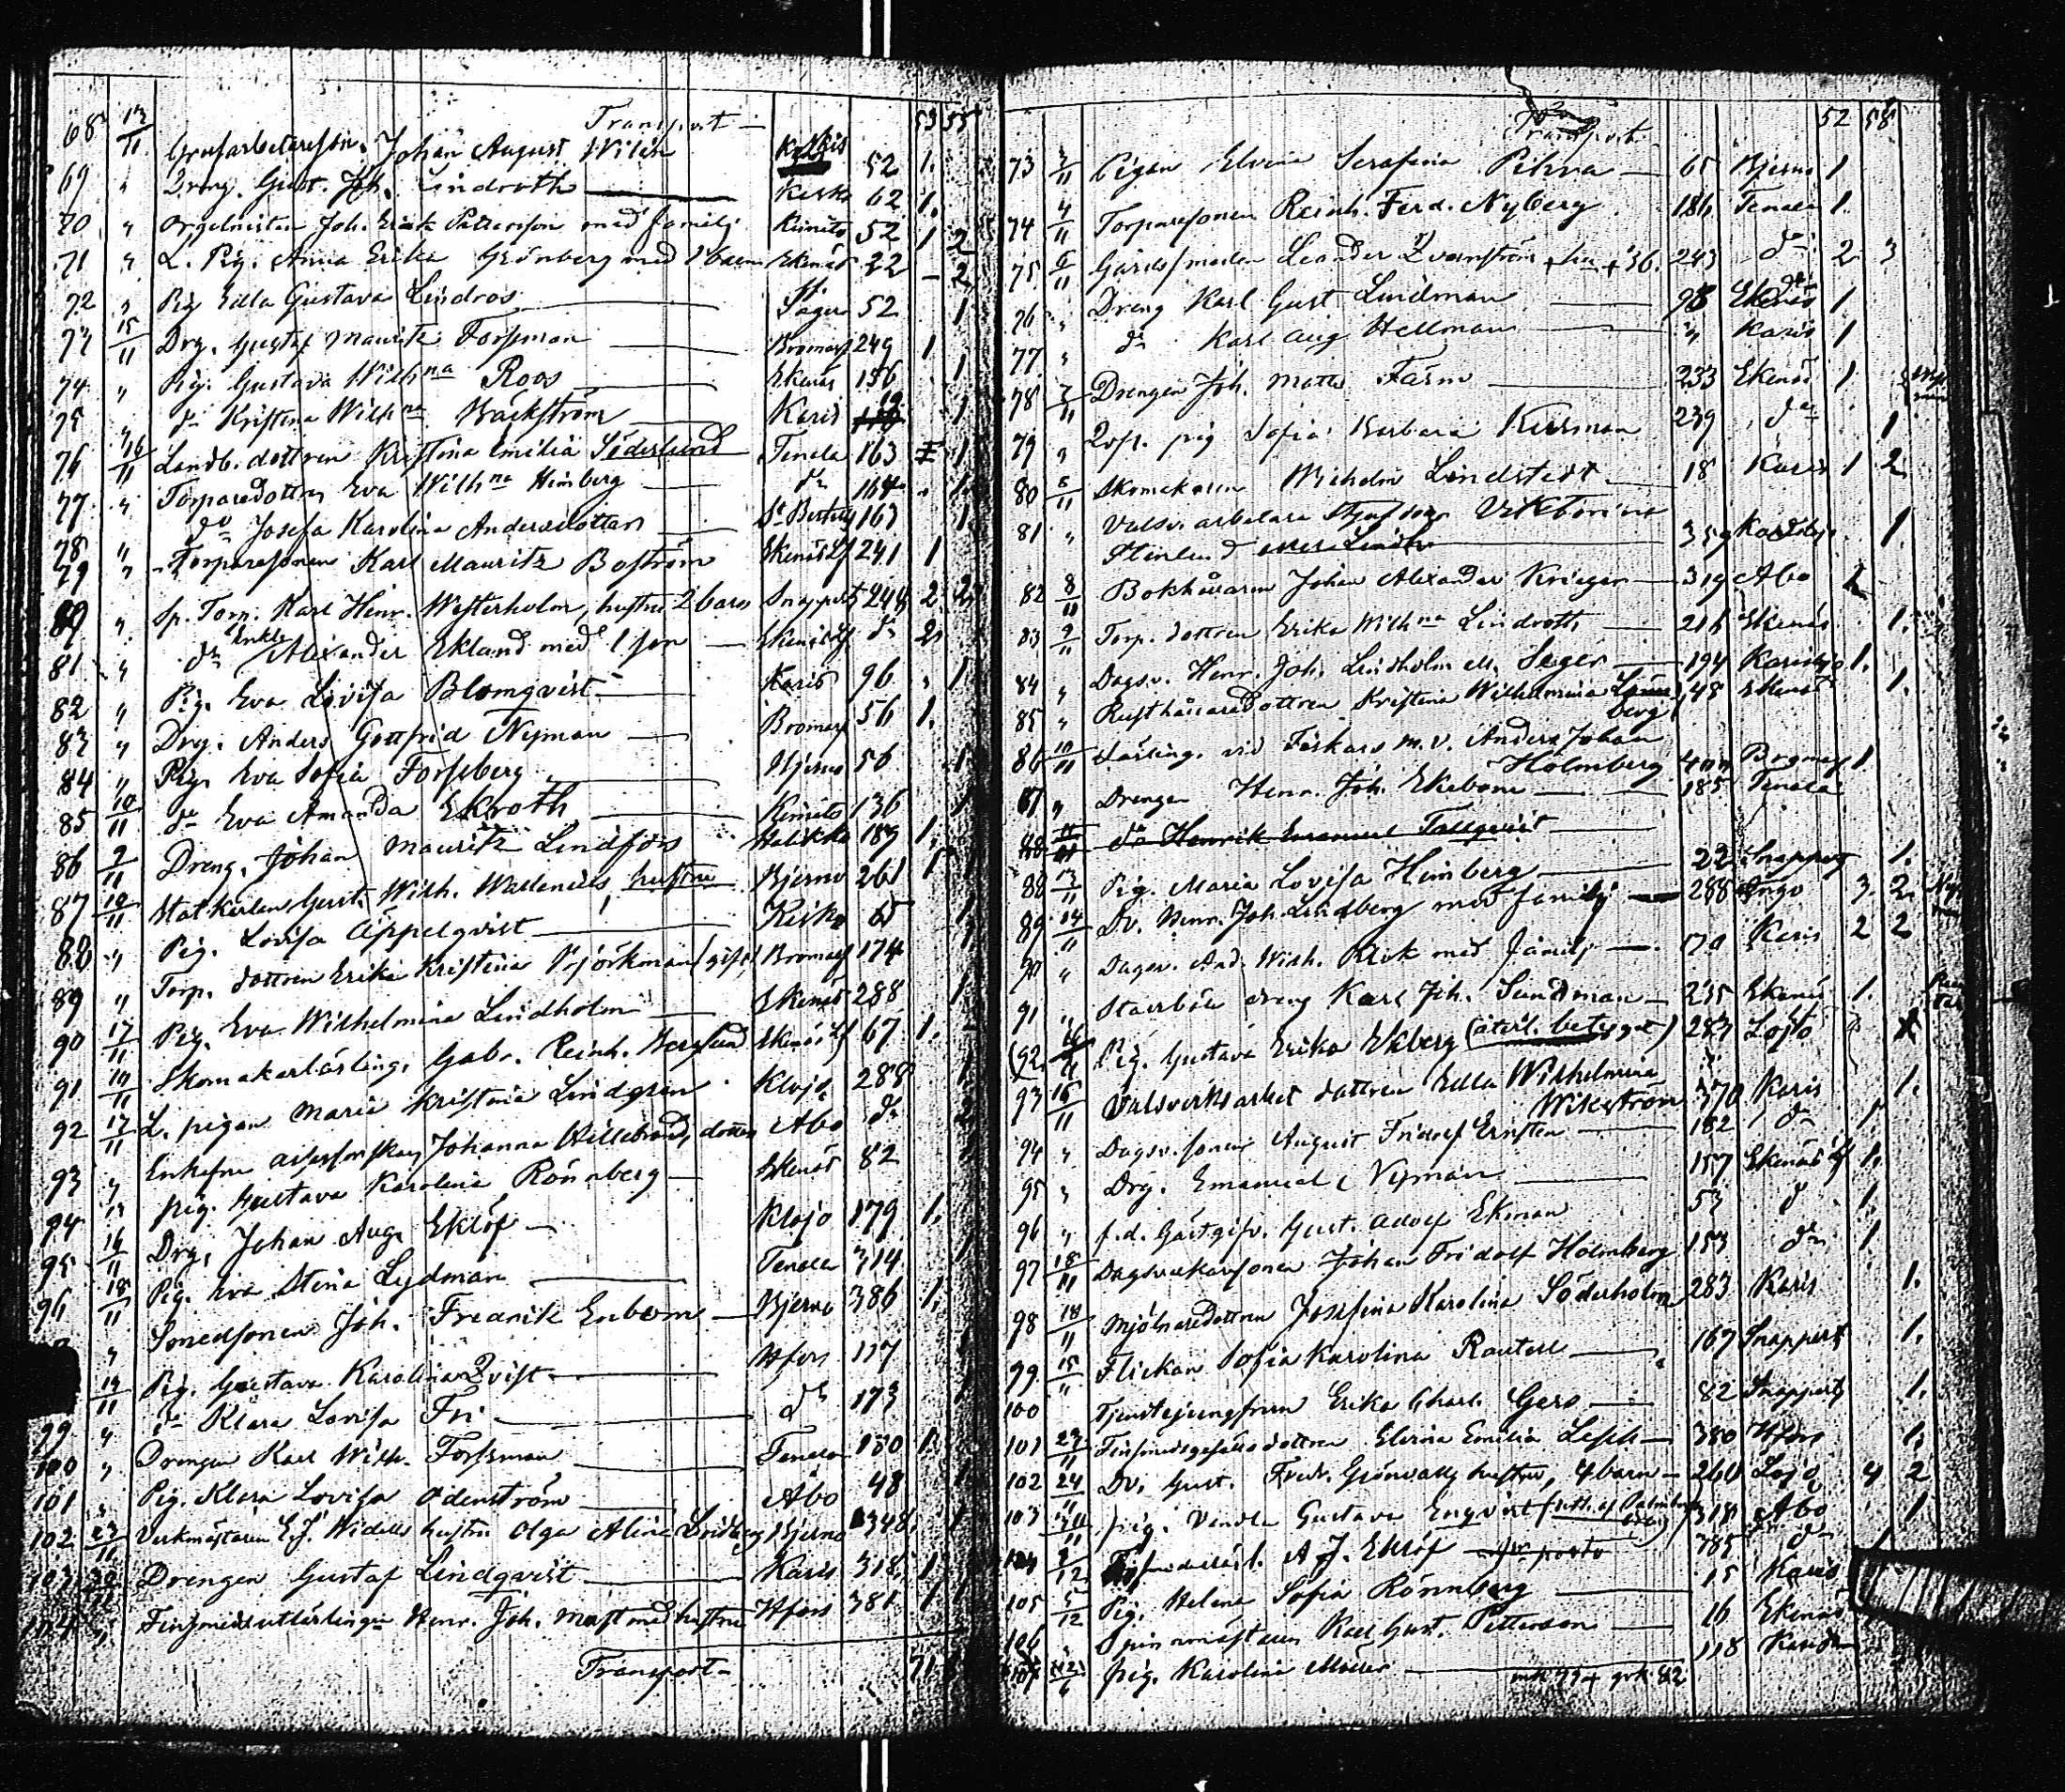 Transport — 53 55
68 13/11 Grufarbetaresson. Johan August Wilén 52 1.
69 " Dreng. Gust. Joh. Lindroth — Kisko 62 1.
70 " Orgelnisten Joh. Erik Pettersson med familj Kimito 52 1 2
71 " L. Pig. Anna Erika Grönberg med 1 barn Ekenäs 22 - 2
72 " Pig Edla Gustava Lindros — 52 1
73 15/11 Drg. Gustaf Mauritz Forsman — Bromarf 249 1
74 " Pig. Gustava Wilhna Roos — Ekenäs 156 1
75 " do Kristina Wilhna Bäckström — Karis 1
76 16/11 Landb. dottren Kristina Emilia Söderlund Tenala 163 1
77 " Torparedottren Eva Wilhna Himberg — do 164 1.
78 " do Josefa Karolina Andersdotter — St Bertils 163 1.
79 " Torparesonen Karl Mauritz Boström Ekenäs Lf 241 1
" Sp. Torp. Karl Henr. Westerholm, hustru 2 barn Snappert 244 2 2
81 " do Enkl. Alexander Eklund med 1 son — Ekenäs Lf do 2
82 " Pig. Eva Lovisa Blomqvist — Karis 96 1
83 " Drg. Anders Gottfrid Nyman — Bromarf 56 1.
84 " Pig. Eva Sofia Forssberg — Bjerno 56 1
85 10/11 do Eva Amanda Ekroth — Kimito 136 1
86 9/11 Dreng. Johan Mauritz Lindfors Halikko 189 1.
87 10/11 Statkarlen Gust. Wilh. Wallenius, hustru Bjerno 261 1 1
88 " Pig. Lovisa Äppelqvist — Kisko 1
89 " Torp. dottren Erika Kristina Björkman (gift) Bromarf 174
90 17/11 Pig. Eva Wilhelmina Lindholm — Ekenäs 288 1
91 14/11 Skomakarlärling. Gabr. Reinh. Berglund Ekenäs Lf 67 1.
92 17/11 L. pigan Maria Kristina Lindgren Klojo 288
93 " Enkefru Johanna Hillebrand, dotter Åbo do 2
94 13 pig. Gustava Karolina Rönnberg — Ekenäs 82
95 16/11 Drg. Johan Aug. Eklöf — Klojo 179 1.
96 18/11 Pig. Eva Stina Lydman — Tenala 314 1
" Sonedsonen Joh. Fredrik Enbom — Bjerno 386 1.
19/11 Pig. Gustava Karolina Qvist — Hfors 117 1
99 " do Klara Lovisa Fri — do 173 1
100 " Drengen Karl Wilh. Forssman — Tenala 180 1.
101 " Pig. Klara Lovisa Odenström — Åbo 48 1
102 23/11 Verkmästaren E.J. Widells hustru Olga Alina Lindberg Bjerno 348 1
103 30/11 Drengen Gustaf Lindqvist — Karis 318 1
104 " Finsmedsutlärlingen Henr. Joh. Mast med hustru Hfors 381 1 1
Transport — 71
Transport 52 58
73 3/11 Pigan Elvina Serafina Pihva — 65 Bjerno 1
74 4/11 Torparesonen Reinh. Ferd. Nyberg 186 Tenala 1.
75 5/11 Gårdssmeden Leander Qvarnström 243 do 2 3
76 " Dreng Karl Gust Lindman — 98 Ekenäs 1
77 " do Karl Aug Hellman — " Karis 1
78 7/11 Drengen Joh. Matts Färm — 233 Ekenäs 1
79 " Qvf. pig Sofia Barbara Kursman 239 do 1
80 8/11 Skomakaren Wilhelm Lindstedt — 18 Karis 1 2
81 " Valsv. arbetare Viktorina
— 359 Karislojo 1.
82 8/11 Bokhållaren Johan Alexander Krieger — 319 Åbo 1
83 9/11 Torp. dottren Erika Wilhna Lindroth — 216 Ekenäs 1.
84 " Dagsv. Henr. Joh. Lindholm Seger — 194 Karislojo 1.
85 " Rusthållaredottren Kristina Wilhelmina Lönn
berg 48 Ekenäs 1.
86 10/11 Lärling. vid Fiskars m.v. Anders Johan
Holmberg Bromarf 1.
87 " Drengen Henr. Joh. Ekebom — 185 Tenala
88 do Henrik Emanuel Tallqvist —
88 13/11 Pig. Maria Lovisa Himberg — 22 Snappert 1.
89 14/11 Dv. Henr. Joh. Lindberg med familj — 288 Ingo 3. 2.
90 " Dagsv. And. Wilh. Rivk med familj — 170 Karis 2 2
91 " dreng Karl Joh. Sundman — 235 Ekenäs 1.
92 16/11 Pig. Gustava Erika Ekberg (återl. betyget) 283 Lojo
93 16/11 Valsverksarbet dottren Edla Wilhelmina
Wikström 370 Karis 1.
94 " Dagsv. sonen August Fridolf Ernsten — 182 do 1.
95 " Drg. Emanuel Nyman — 157 Ekenäs Lf 1.
96 " f.d. Gästgifv. Gust. Adolf Ekman 53 do 1.
97 18/11 Dagsverkaresonen Johan Fridolf Holmberg 153 do 1
98 18/11 Mjölnaredottren Josefina Karolina Söderholm 283 Karis 1.
99 15/11 Flickan Sofia Karolina Rautell — 167 Snappert 1.
100 Tjenstejungfrun Erika Charl. Gers — 82 Snappert 1.
101 23/11 Finsmedsgesällsdottren Elvina Emilia Lesch — 380 Hfors 1.
102 24/11 Dv. Gust. Fredr. Grönvall, hustru, 4 barn — 260 Lojo 4 2
103 30/11 pig. Vendla Gustava Engvist 318 Åbo 1
104 2/12 A J. Eklöf — porto 785 do 1
105 5/12 Pig. Helena Sofia Rönnberg — 15 Karis
106 " Spinnmästaren Karl Gust. Petterson — 16 Ekenäs
107 12/" pig. Karolina Möller — 118
mk 79 + grk 82